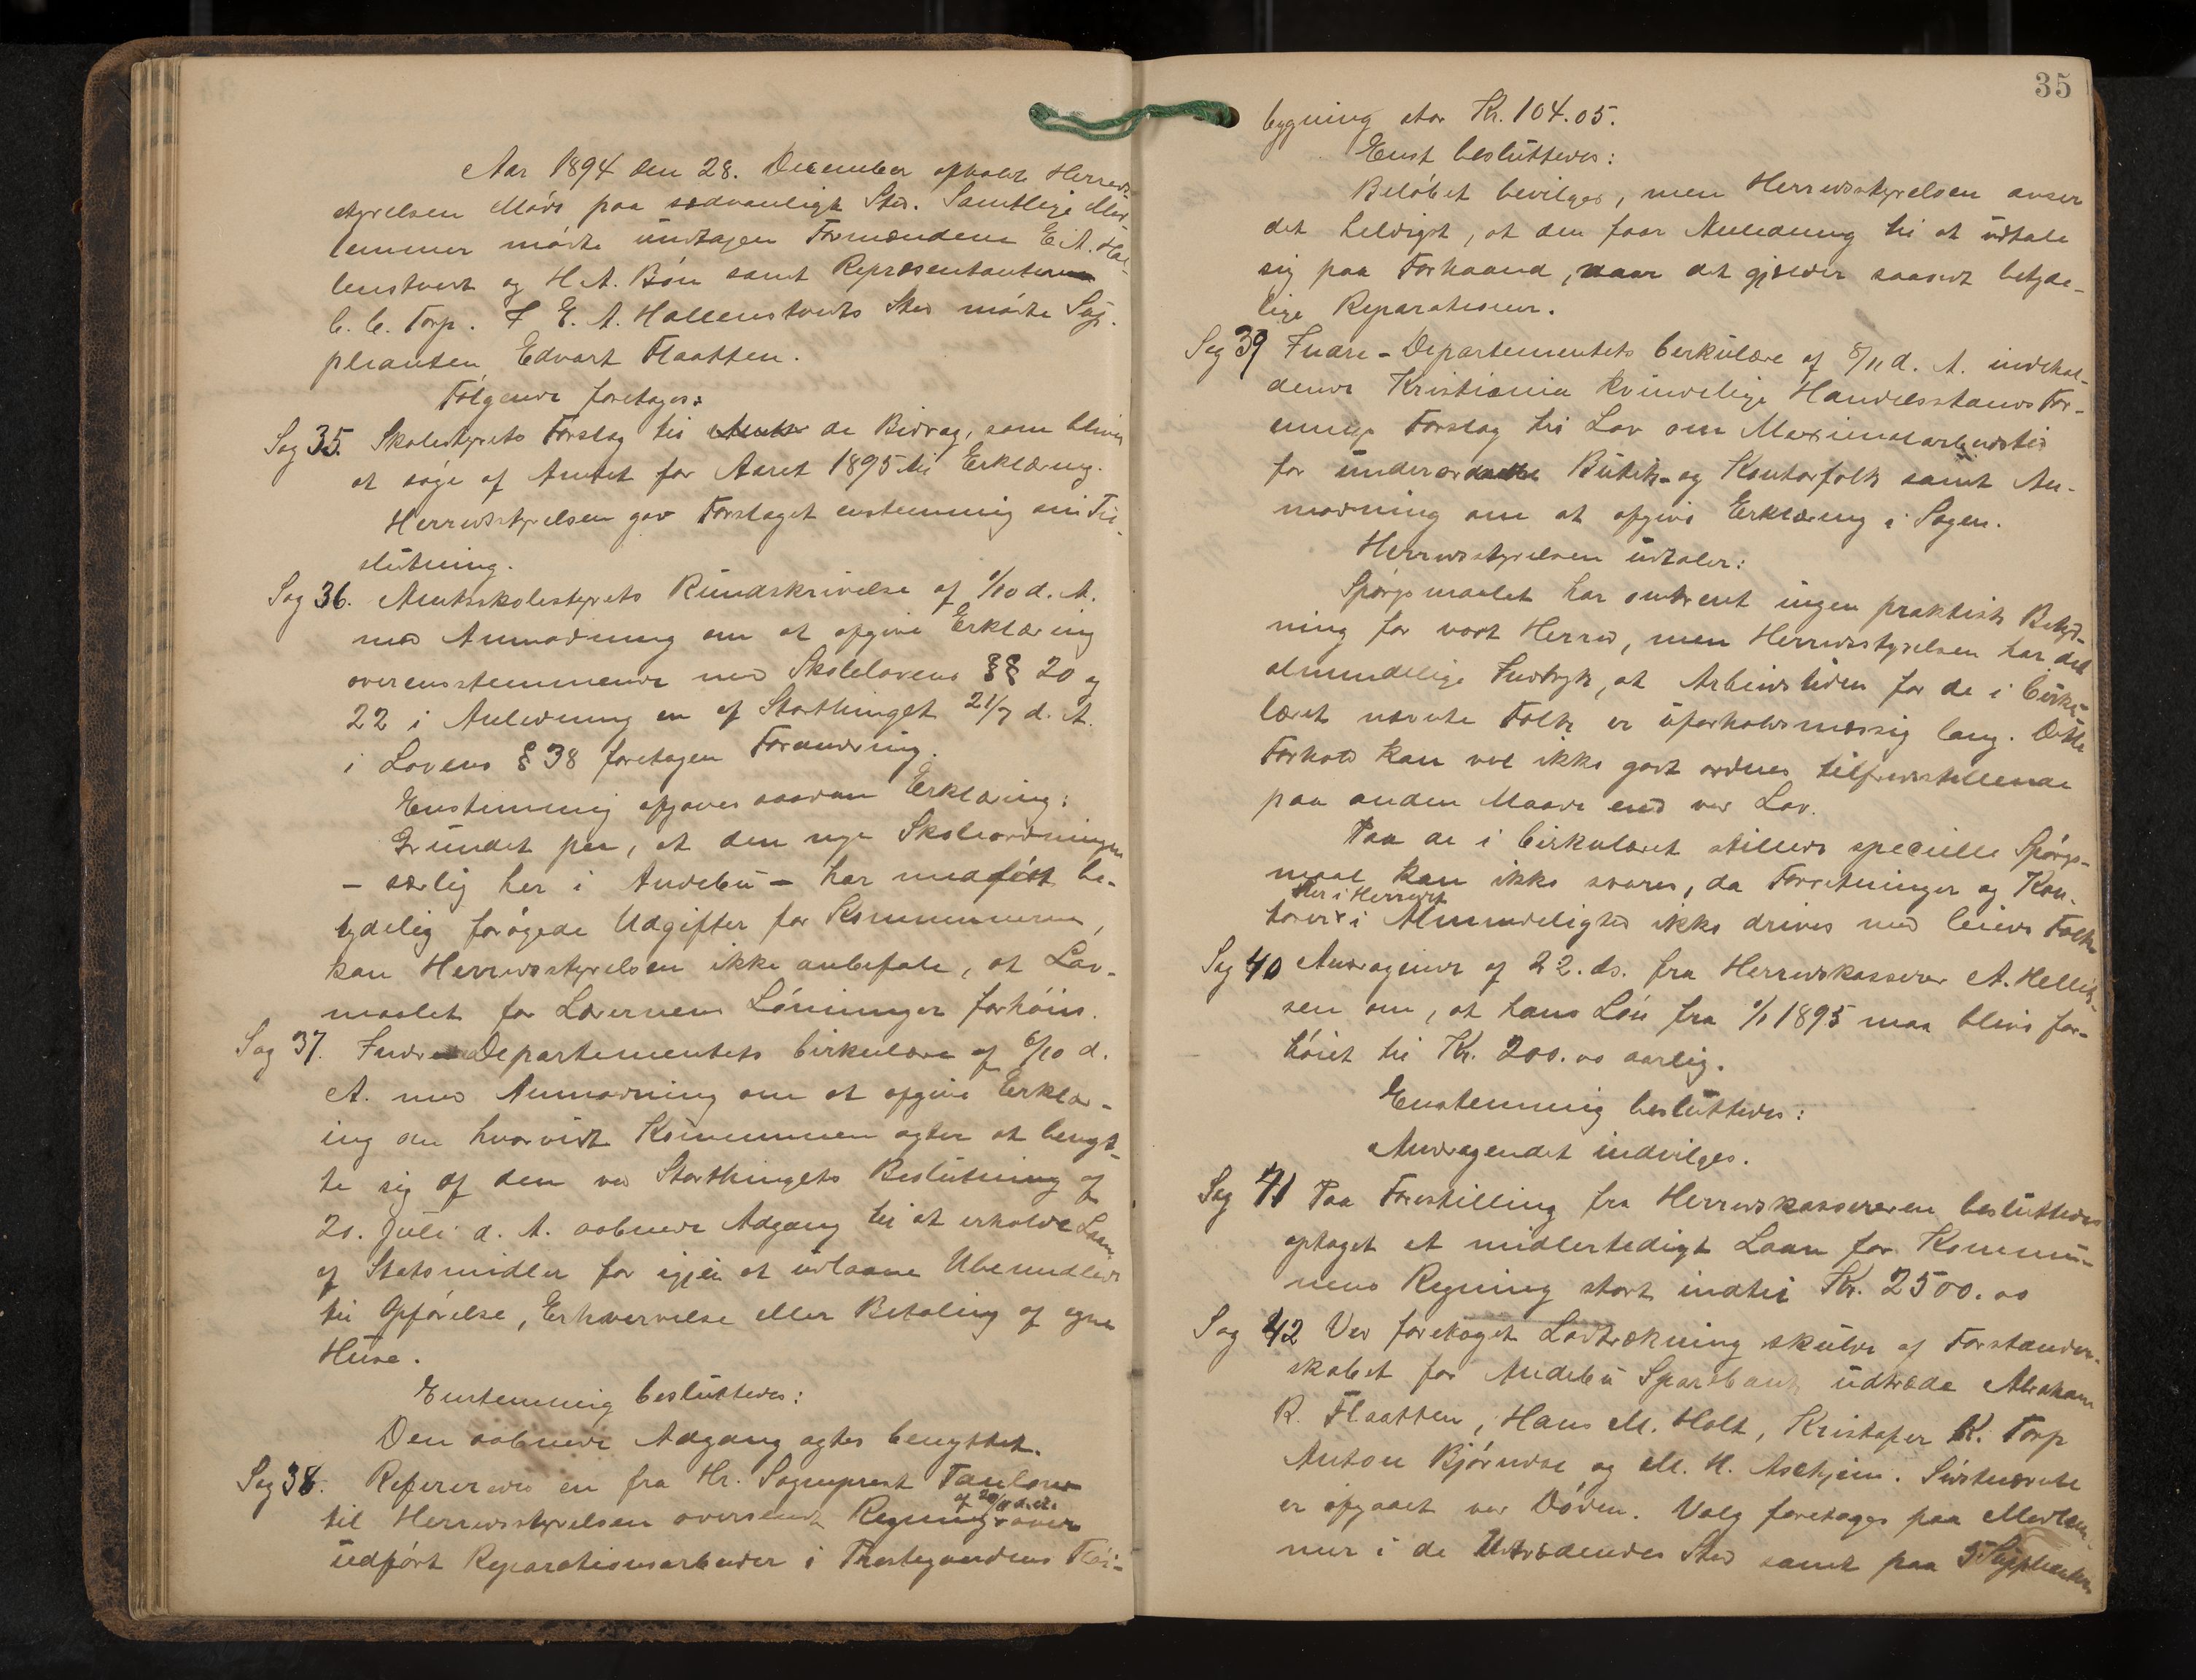 Aar 1894 den 28. December afholdt Herreds-
styrelsen Møde paa sædvanligt Sted. Samtlige Med-
lemmer mødte undtagen Formændene E. A. Hal-
lenstvedt og H. A. Bøen samt Repræsentanten
C. C. Torp. I E. A. Hallenstvedts Sted mødte Sup-
pleanten Edvart Flaatten.
Følgende foretoges:
Sag 35. Skolestyrets Forslag til de Bidrag, som bliver
at søge af Amtet for Aaret 1895 til Erklæring.
Herredsstyrelsen gav Forslaget enstemmig sin Til-
slutning.
Sag 36. Amtsskolestyrets Rundskrivelse af 1/10 d. A.
med Anmodning om at afgive Erklæring
overensstemmende med Skolelovens §§ 20 og
22 i Anledning en af Storthinget 21/7 d. A.
i Lovens § 38 foretagen Forandring.
Enstemmig afgaves saadan Erklæring:
Grundet paa, at den nye Skoleordningen
- særlig her i Andebu - har medført be-
tydelig forøgede Udgifter for Kommunerne,
kan Herredsstyrelsen ikke anbefale, at Lav-
maalet for Lærernes Lønninger forhøies.
Sag 37. Indre Departementets Cirkulære af 6/10 d.
A. med Anmodning om at afgive Erklær-
ing om hvorvidt Kommunen agter at benyt-
te sig af den ved Storthingets Beslutning af
20. Juli d. A. aabnede Adgang til at erholde Laan
af Statsmidler for igjen at udlaane Ubemidlede
til Opførelse, Erhvervelse eller Betaling af egne
Huse.
Enstemmig besluttedes:
Den aabnede Adgang agtes benyttet.
Sag 38. Refereredes en fra Hr. Sogneprest Taulow
af 20/11 d. A.
til Herredsstyrelsen oversendt Regning over
udført Reparationsarbeider i Prestegaardens
35
bygning stor Kr. 104.05.
Enst besluttedes:
Beløbet bevilges, men Herredsstyrelsen anser
det heldigst, at den faar Anledning til at udtale
sig paa Forhaand, naar det gjælder saavidt betyde-
lige Reparationer.
Sag 39 Indre-Departementets Cirkulære af 8/11 d. A. indehol-
dende Kristiania kvindelige Handelsstands For-
enings Forslag til Lov om Maximalarbeidstid
for underordnede Butik- og Kontorfolk samt An-
modning om at afgive Erklæring i Sagen.
Herredsstyrelsen udtaler:
Spørgsmaalet har omtrent ingen praktisk Betyd-
ning for vort Herred, men Herredsstyrelsen har det
almindelige Indtryk, at Arbeidstiden for de i Cirku-
læret nævnte Folk er uforholdsmæssig lang. Dette
Forhold kan vel ikke godt ordnes tilfredsstillende
paa anden Maade end ved Lov.
Paa de i Cirkulæret stillede specielle Spørgs-
maal kan ikke svares, da Forretninger og Kon-
her i Herredet
torer i Almindelighed ikke drives med leiede Folk.
Sag 40 Andragende af 22. ds. fra Herredskasserer A. Hellik-
sen om, at hans Løn fra 1/1 1895 maa blive for-
høiet til Kr. 200.00 aarlig.
Enstemmig besluttedes:
Andragendet indvilges.
Sag 41 Paa Forestilling fra Herredskassereren besluttedes
optaget et midlertidigt Laan for Kommu-
nens Regning stort indtil Kr. 2500.00
Sag 42 Ved foretaget Lodtrækning skulde af Forstander-
skabet for Andebu Sparebank udtræde Abraham
R. Flaatten, Hans M. Holt, Kristofer K. Torp
Anton Bjørndal og M. H. Askjem. Sidstnævnte
er afgaaet ved Døden. Valg foretages paa Medlem-
mer i de Udtrædendes Sted samt paa 5 Suppleanter